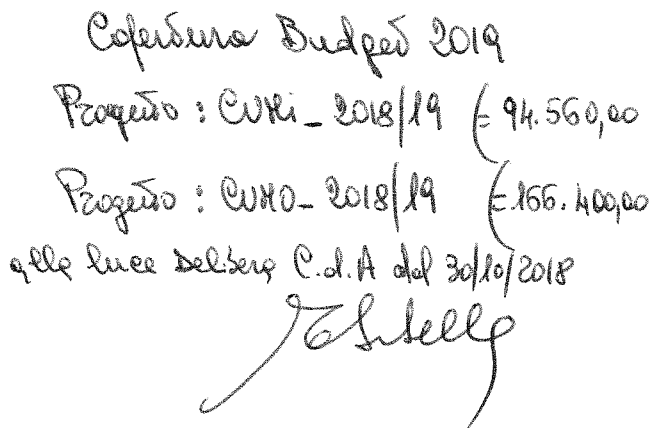 Copertura Budget 2019
Progetto : CUMI_ 2018/19 (€ 94.560,00
Progetto : CUMO_ 2018/19 (€ 166.400,00
alla luce Delibera C.d.A del 30/10/2018